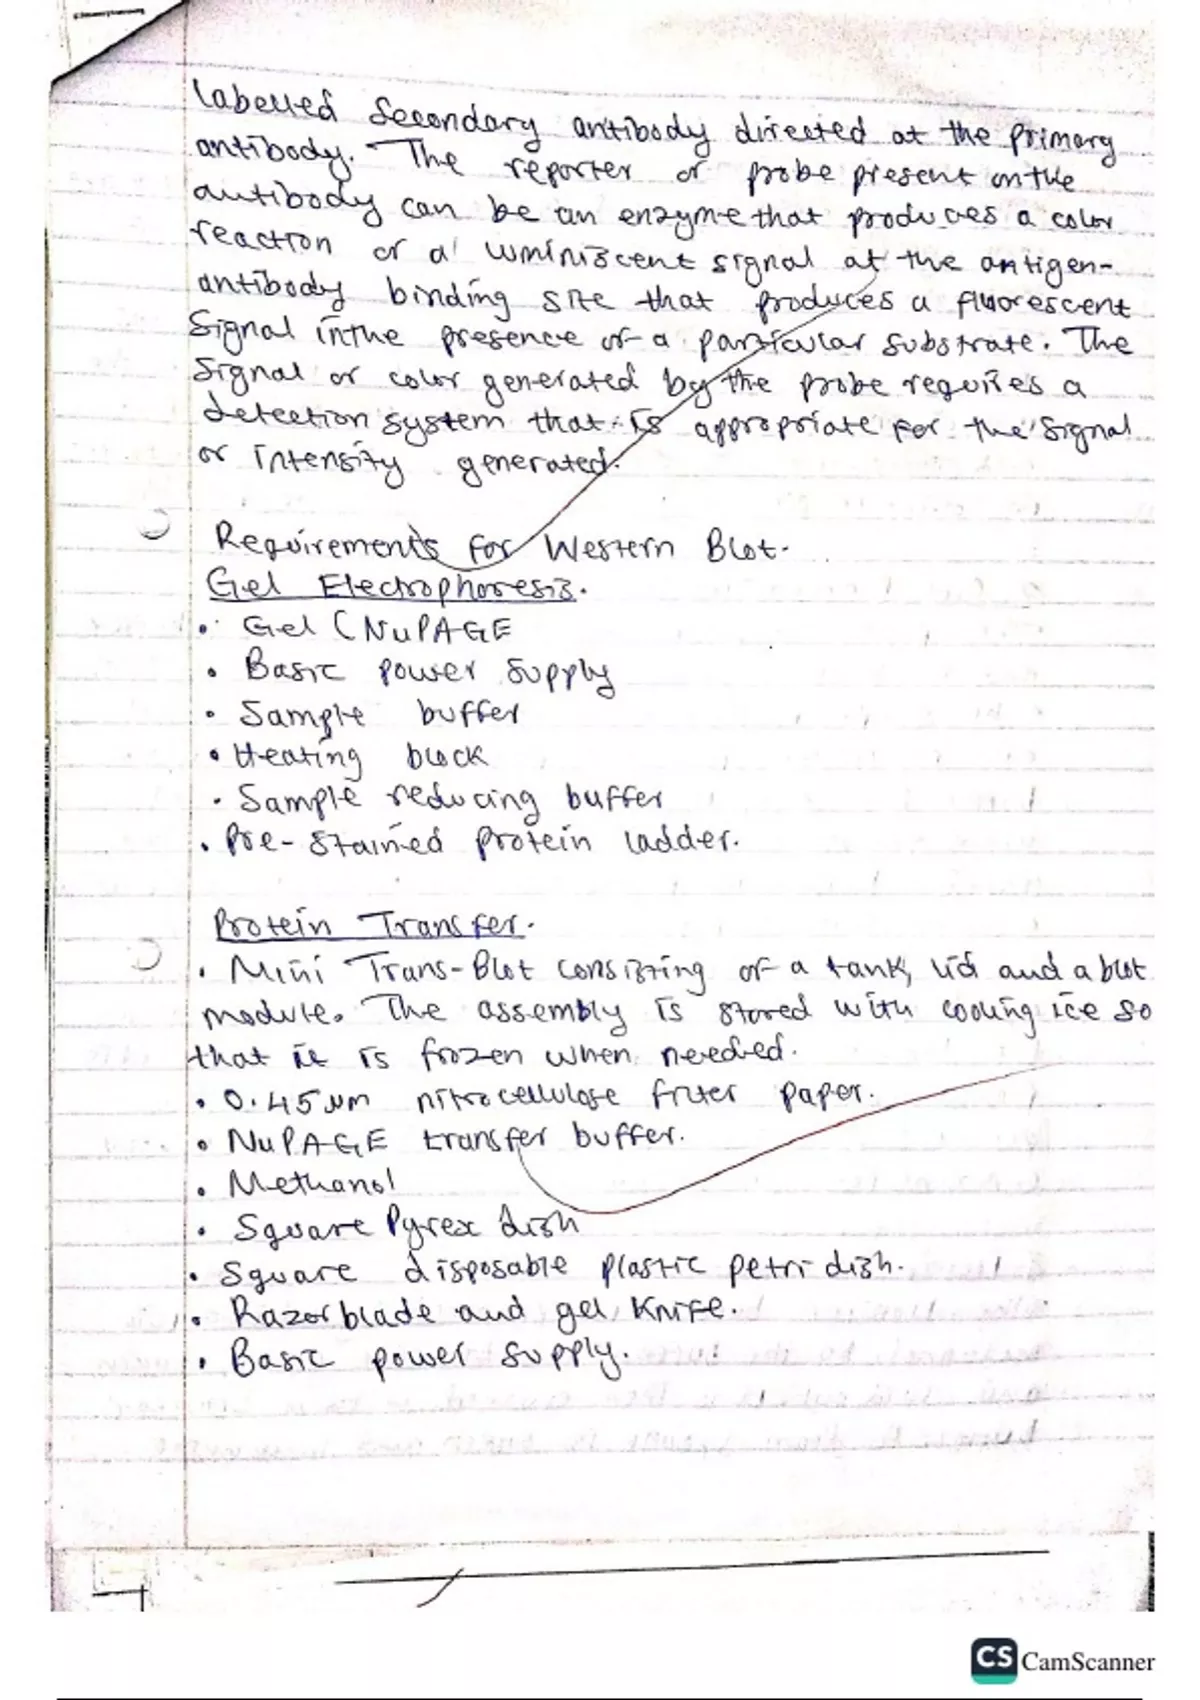 Labelled Secondary antibody directed at the primary
antibody. The reporter or probe present on the
antibody can be an enzyme that produces a color
reaction or a luminiscent signal at the antigen-
antibody binding site that produces a fluorescent
Signal in the presence of a particular substrate. The
Signal or color generated by the probe requires a
detection system that is appropriate for the signal
or intensity generated.
Requirements for Western Blot.
Gel Electrophoresis.
• Gel (NuPAGE
• Basic power supply
• Sample buffer
• Heating block
• Sample reducing buffer
• Pre-stained protein ladder.
Protein Transfer.
• Mini Trans-Blot consisting of a tank, lid and a blot
module. The assembly is stored with cooling ice so
that it is frozen when needed.
• 0.45 µm nitrocellulose filter paper.
• NuPAGE transfer buffer.
• Methanol
• Square Pyrex dish
• Square disposable plastic petri dish.
• Razor blade and gel knife.
• Basic power supply.
CS CamScanner